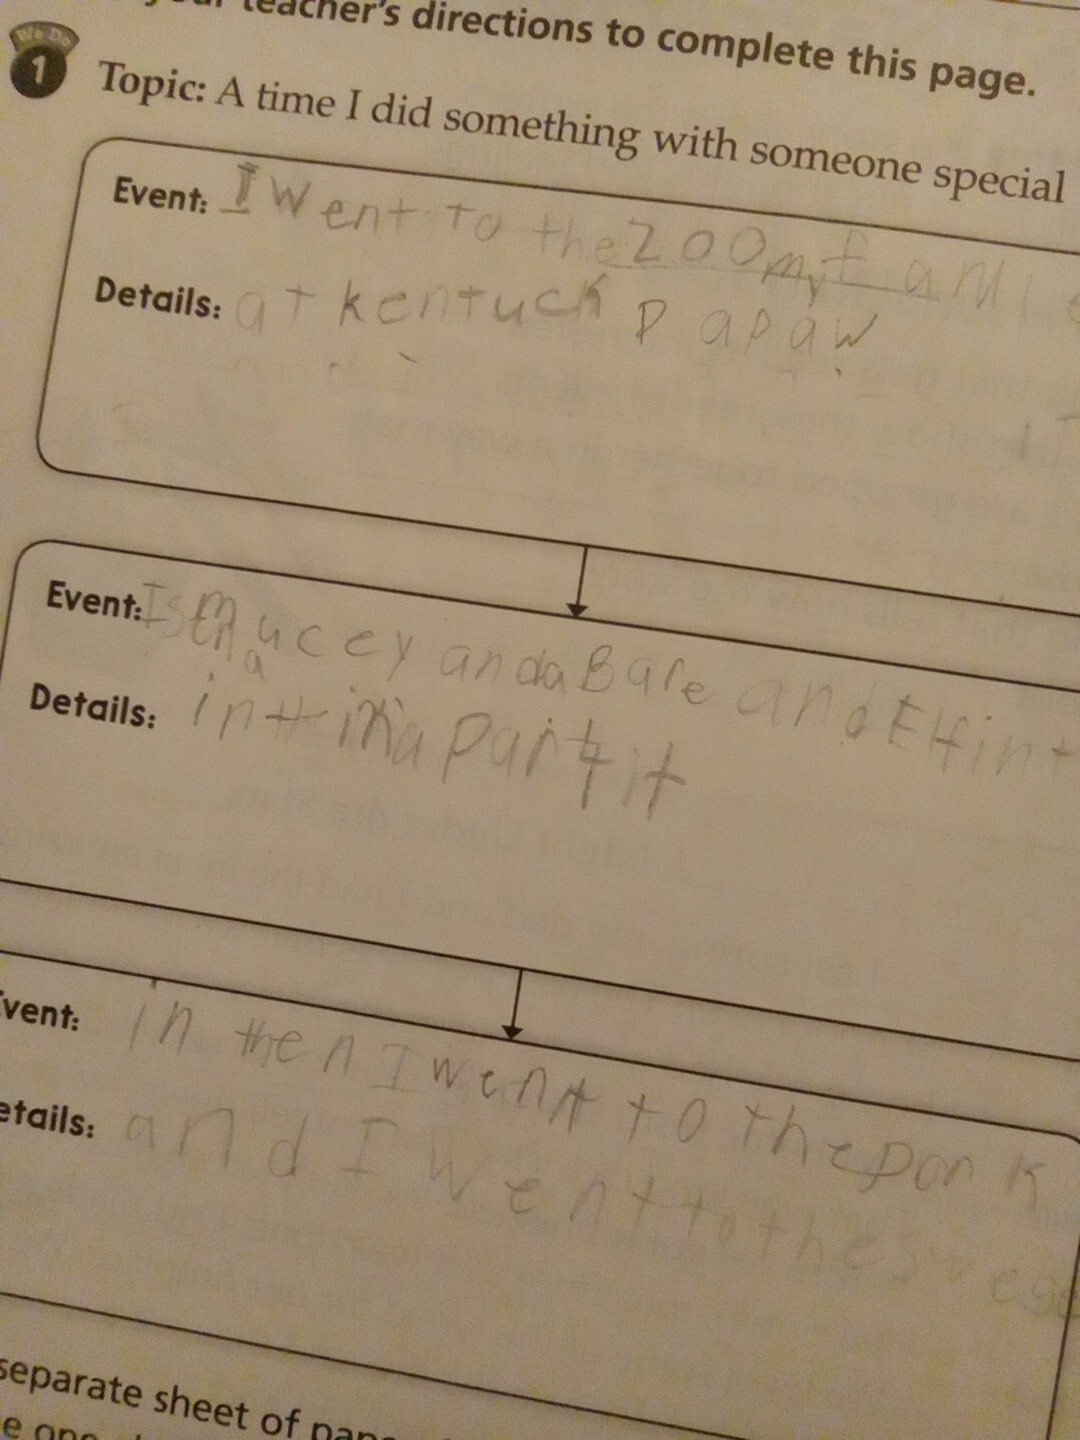 teacher's directions to complete this page.
We Do
1
Topic: A time I did something with someone special
Event: I went to the zoo my famile
Details: at kentuck papaw
Event: I a ucey and a Bare and Elfint
Details: in it in a part it
vent: in then I went to the pork
etails: and I went to the
separate sheet of
e one